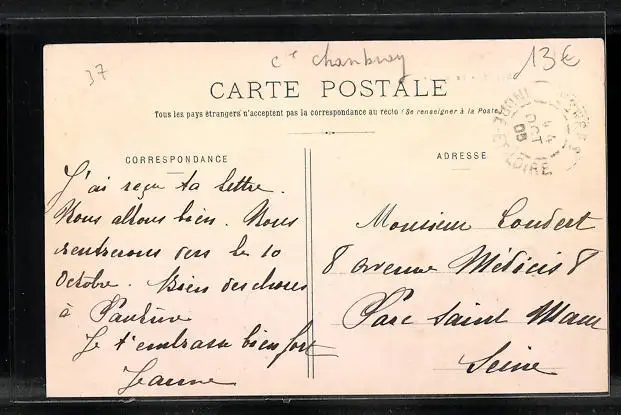 37
Cte Chanbray
13€
CARTE POSTALE
Tous les pays étrangers n'acceptent pas la correspondance au recto (Se renseigner à la Poste)
CORRESPONDANCE
ADRESSE
INDRE-ET-LOIRE
OCT
05
J'ai reçu ta lettre.
Nous allons bien. Nous
rentrerons vers le 10
Octobre. Bien des choses
à Pauline
Je t'embrasse bien fort
Jeanne
Monsieur Coudert
8 avenue Médicis 8
Parc Saint Maur
Seine